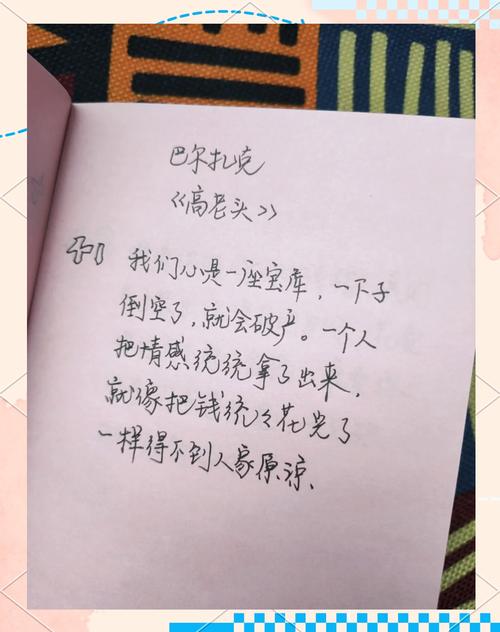 巴尔扎克
《高老头》
我们心是一座宝库，一下子
倒空了，就会破产。一个人
把情感统统拿了出来，
就像把钱统々花光了
一样得不到人家原谅、